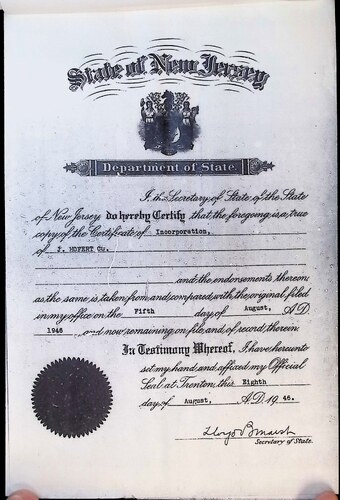 State of New Jersey
Department of State.
I, the Secretary of State of the State
of New Jersey do hereby Certify that the foregoing is a true
copy of the Certificate of Incorporation,
of J. HOFERT CO.
and the endorsements thereon
as the same is taken from and compared with the original filed
in my office on the Fifth day of August, A.D.
1946 and now remaining on file and of record therein.
In Testimony Whereof, I have hereunto
set my hand and affixed my Official
Seal at Trenton, this Eighth
day of August, A.D. 19 46.
Lloyd B Marsh
Secretary of State.